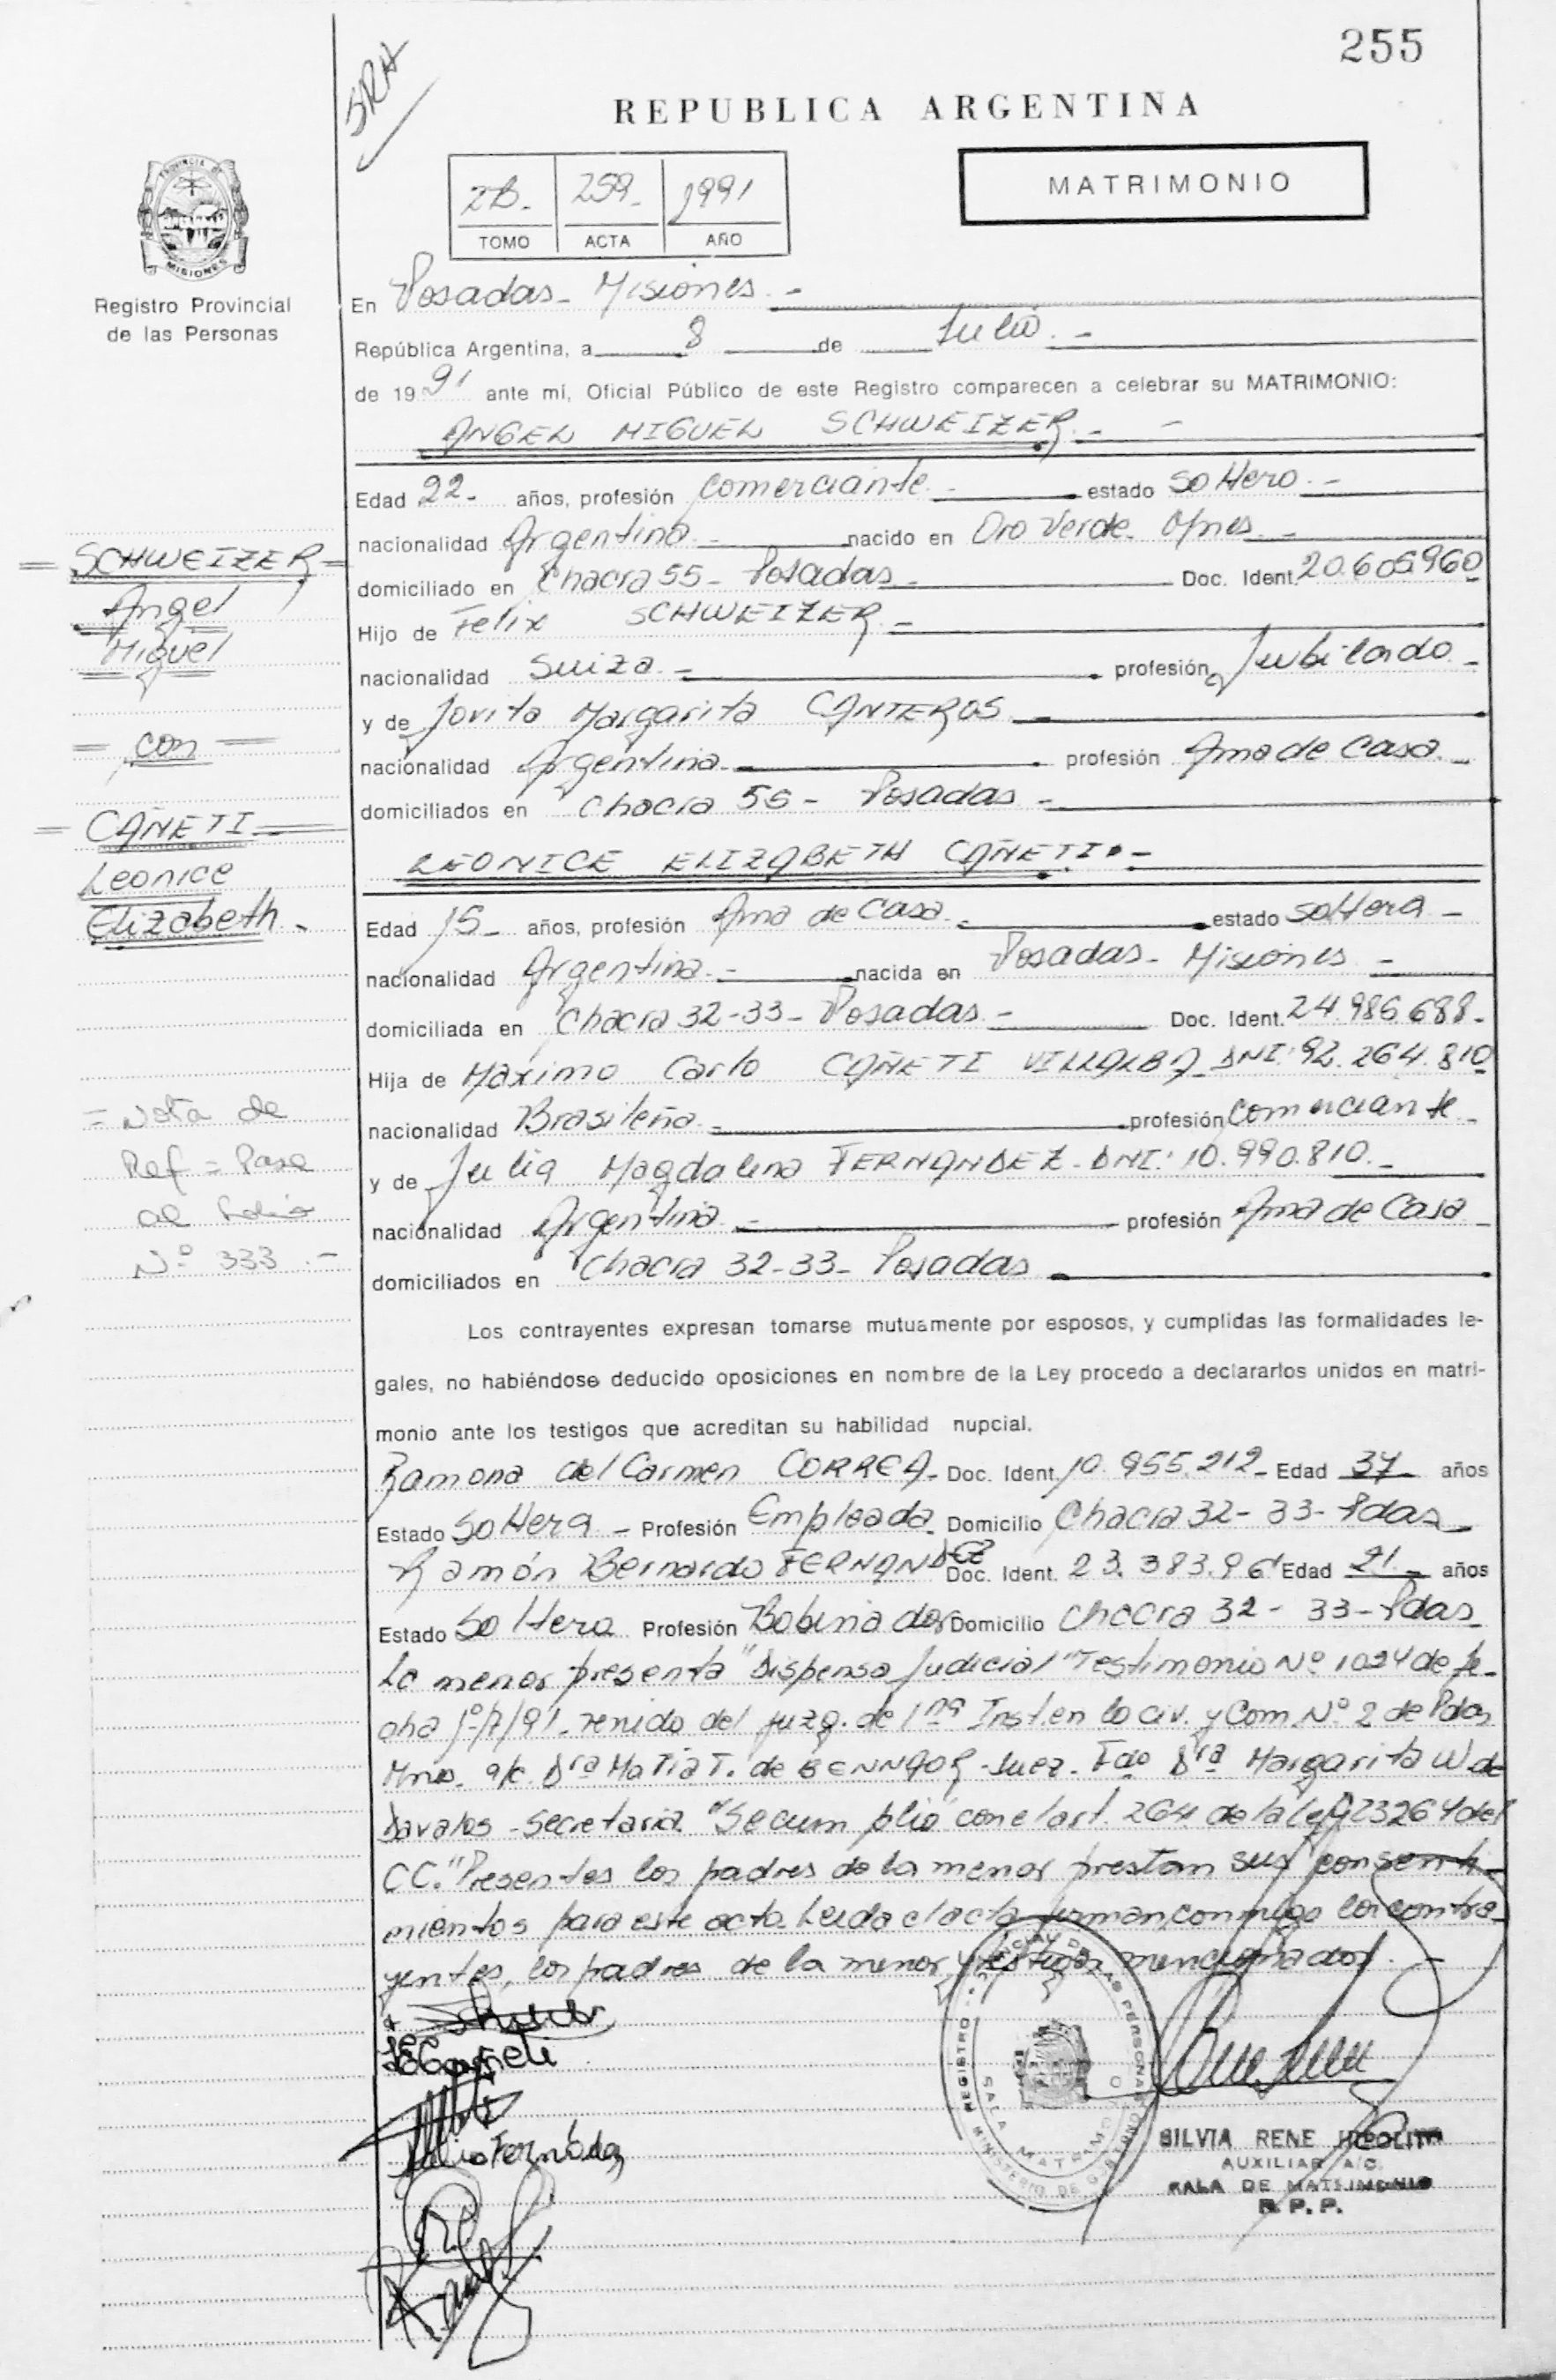 255
SRH
REPUBLICA ARGENTINA
MATRIMONIO
2B- 259- 1991
TOMO ACTA AÑO
PROVINCIA DE
MISIONES
Registro Provincial
de las Personas
En Posadas- Misiones.-
República Argentina, a 8 de Julio.-
de 1991 ante mi, Oficial Público de este Registro comparecen a celebrar su MATRIMONIO:
ANGEL MIGUEL SCHWEIZER.-
Edad 22- años, profesión comerciante.- estado soltero.-
nacionalidad Argentina.- nacido en Oro Verde. Mnes.-
domiciliado en Chacra 55- Posadas- Doc. Ident. 20.605960
Hijo de Felix SCHWEIZER.-
nacionalidad Suiza.- profesión Jubilado-
y de Jovita Margarita CANTEROS-
nacionalidad Argentina.- profesión Ama de Casa.-
domiciliados en Chacra 55- Posadas-
LEONICE ELIZABETH CAÑETI.-
Edad 15- años, profesión Ama de Casa.- estado soltera-
nacionalidad Argentina.- nacida en Posadas- Misiones-
domiciliada en Chacra 32-33- Posadas.- Doc. Ident. 24.986.688-
Hija de Maximo Carlo CAÑETI VILLALBA- DNI: 92.264.810
nacionalidad Brasileña.- profesión comerciante-
y de Julia Magdalena FERNANDEZ- DNI: 10.990.810.-
nacionalidad Argentina- profesión Ama de Casa-
domiciliados en Chacra 32-33- Posadas-
Los contrayentes expresan tomarse mutuamente por esposos, y cumplidas las formalidades le-
gales, no habiéndose deducido oposiciones en nombre de la Ley procedo a declararlos unidos en matri-
monio ante los testigos que acreditan su habilidad nupcial.
Ramona del Carmen CORREA- Doc. Ident. 10.955.212- Edad 37- años
Estado Soltera- Profesión Empleada- Domicilio Chacra 32-33- Pdas-
Ramón Bernardo FERNANDEZ Doc. Ident. 23.383.96 Edad 21- años
Estado Soltero Profesión Bobinador Domicilio Chacra 32-33- Pdas
La menor presenta "Dispensa Judicial" Testimonio Nº 1024 de fe-
cha 1º/7/91- venido del juzg. de 1na Inst. en lo civ. y Com. Nº 2 de Pdas
Mnes. a/c. Dra Maria T. de BENNAOR- Juez- Fdo Dra Margarita W. de
Davalos- Secretaria. "Se cumplió con el art. 264 de la ley 23264 del
CC." Presentes los padres de la menor prestan sus consenti-
mientos para este acto. Leida el acta firman, conmigo los contra-
yentes, los padres de la menor y testigos mencionados.-
= SCHWEIZER =
Angel
Miguel
= con =
= CAÑETI =
Leonice
Elizabeth.
= Nota de
Ref = Pase
al folio
Nº 333.-
LECañeti
Julia Fernández
REGISTRO PROVINCIAL DE LAS PERSONAS
MINISTERIO DE GOBIERNO
SALA MATRIMONIO
SILVIA RENE HIPOLITO
AUXILIAR A/C.
SALA DE MATRIMONIO
R. P. P.